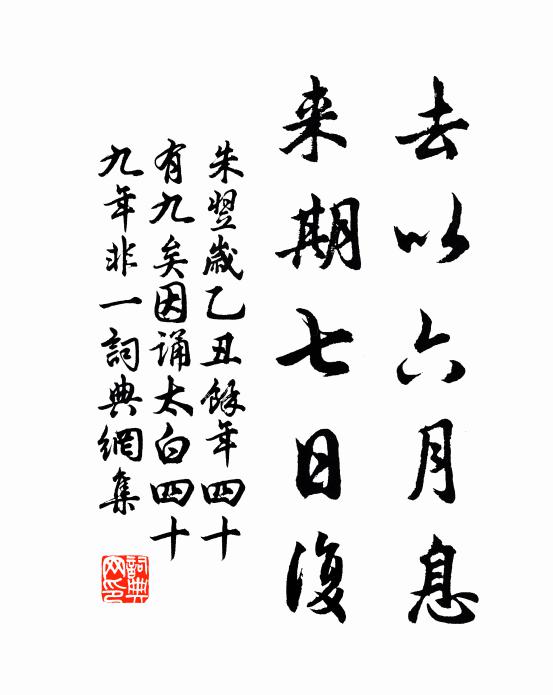 去以六月息
来期七日復
朱翌歳乙丑餘年四十
有九矣因誦太白四十
九年非一詞典網集
詞典
网印